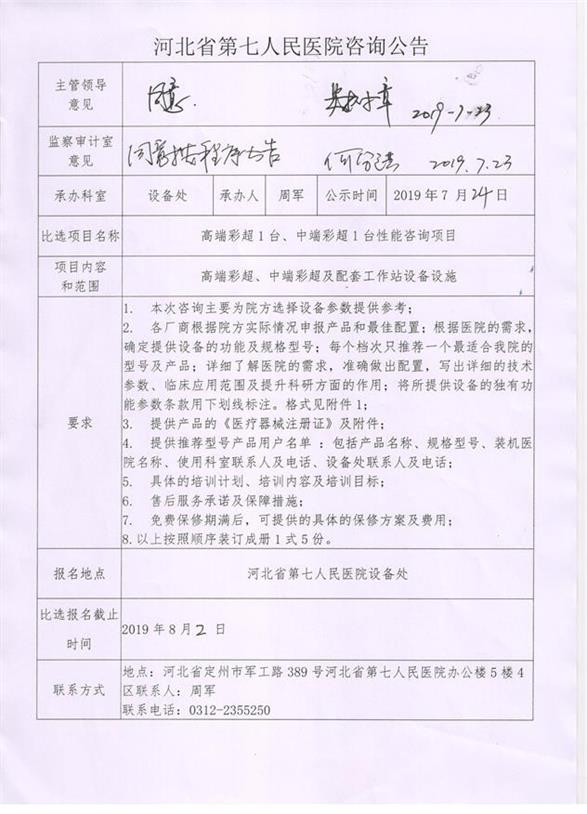 河北省第七人民医院咨询公告
主管领导
意见
同意.
2019-7-23
监察审计室
意见
同意按程序公告
2019.7.23
承办科室 设备处 承办人 周军 公示时间 2019年7月24日
比选项目名称 高端彩超1台、中端彩超1台性能咨询项目
项目内容
和范围
高端彩超、中端彩超及配套工作站设备设施
要求
1. 本次咨询主要为院方选择设备参数提供参考；
2. 各厂商根据院方实际情况申报产品和最佳配置；根据医院的需求，
确定提供设备的功能及规格型号；每个档次只推荐一个最适合我院的
型号及产品；详细了解医院的需求，准确做出配置，写出详细的技术
参数、临床应用范围及提升科研方面的作用；将所提供设备的独有功
能参数条款用下划线标注。格式见附件1；
3. 提供产品的《医疗器械注册证》及附件；
4. 提供推荐型号产品用户名单 ：包括产品名称、规格型号、装机医
院名称、使用科室联系人及电话、设备处联系人及电话；
5. 具体的培训计划、培训内容及培训目标；
6. 售后服务承诺及保障措施；
7. 免费保修期满后，可提供的具体的保修方案及费用；
8.以上按照顺序装订成册1式5份。
报名地点 河北省第七人民医院设备处
比选报名截止
时间
2019年8月2日
联系方式
地点：河北省定州市军工路389号河北省第七人民医院办公楼5楼4
区联系人：周军
联系电话：0312-2355250